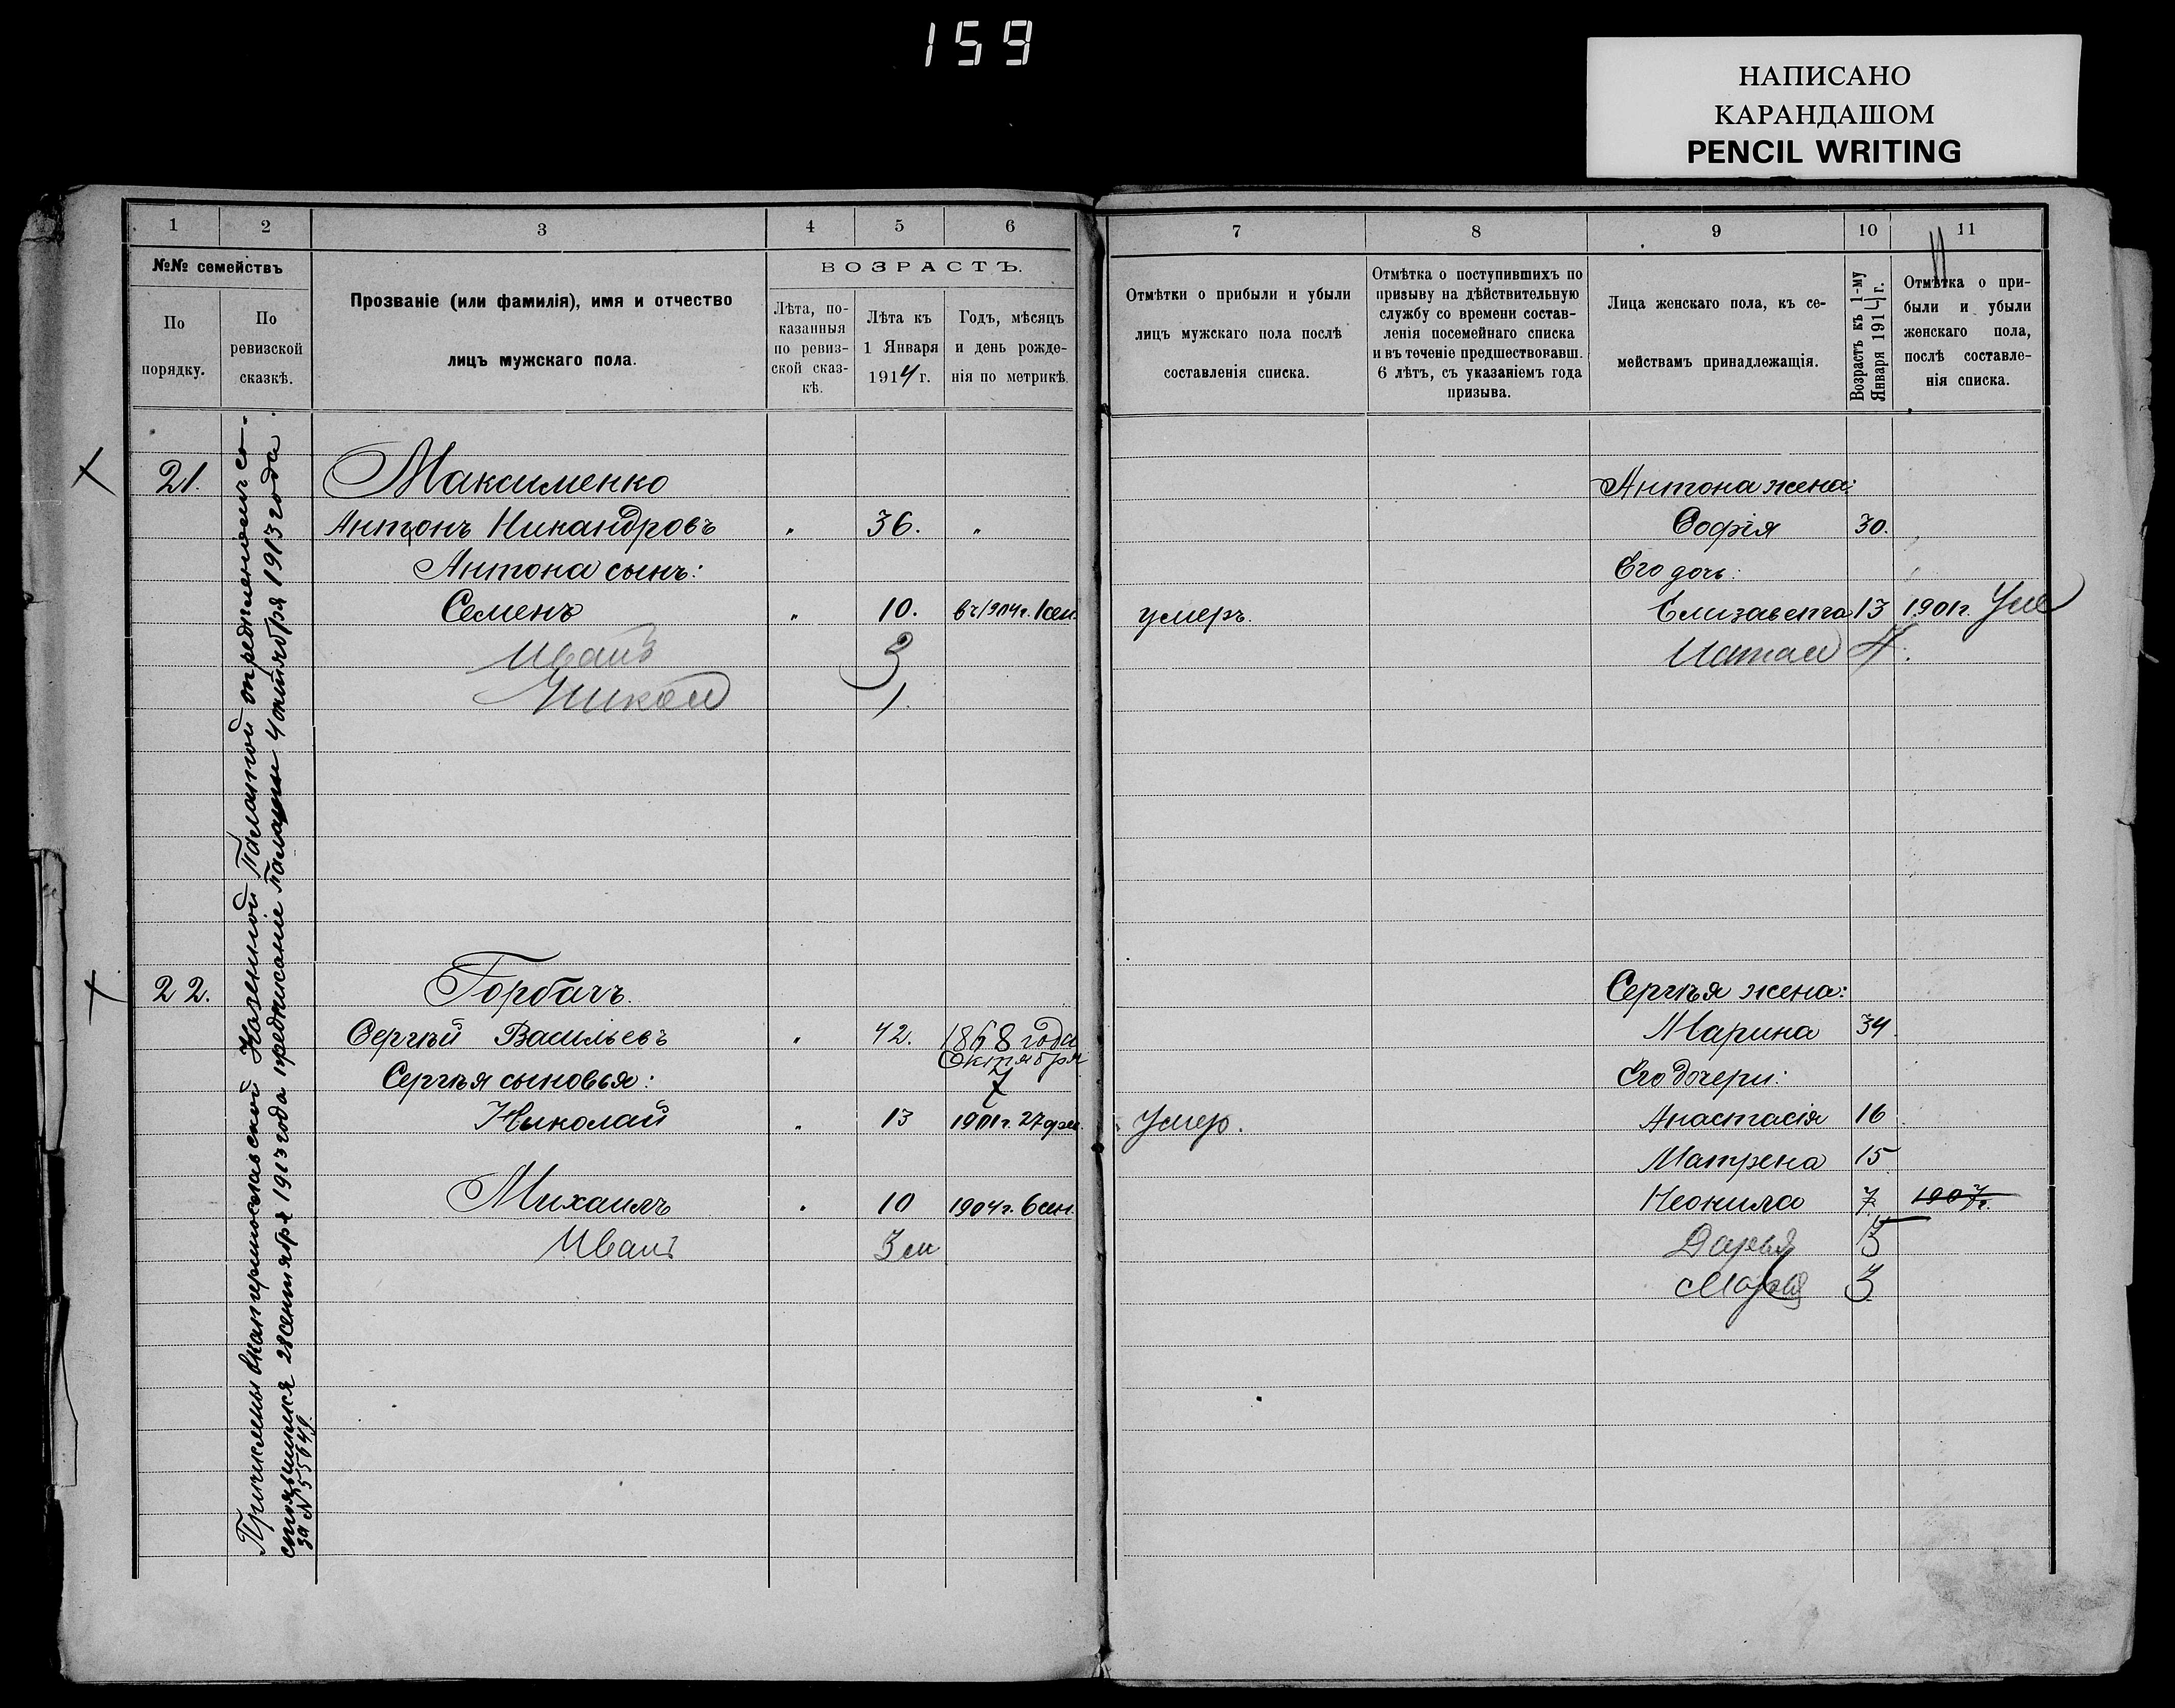 159
НАПИСАНО
КАРАНДАШОМ
PENCIL WRITING
1 2 3 4 5 6
№№ семействъ
По порядку.
По ревизской сказкѣ.
Прозваніе (или фамилія), имя и отчество
лицъ мужскаго пола.
ВОЗРАСТЪ.
Лѣта, по-
казанныя
по ревиз-
ской сказ-
кѣ.
Лѣта къ
1 Января
1914 г.
Годъ, мѣсяцъ
и день рожде-
нія по метрикѣ.
Причислены Екатеринославской Казенной Палатой опредѣленіемъ со-
стоявшимся 28 сентября 1913 года предписаніе Палаты 4 октября 1913 года.
за № 55649.
21. Максименко
Антонъ Никандровъ " 36. "
Антона сынъ:
Семенъ " 10. въ 1904 г. 1 сен.
Иванъ 3
1.
22. Горбачъ.
Сергѣй Васильевъ " 42. 1868 года
Октября
7
Сергѣя сыновья:
Николай " 13 1901 г. 27 фев.
Михаилъ " 10 1904 г. 6 сен.
Иванъ 3 м
7 8 9 10 11
Отмѣтки о прибыли и убыли
лицъ мужскаго пола послѣ
составленія списка.
Отмѣтка о поступившихъ по
призыву на дѣйствительную
службу со времени состав-
ленія посемейнаго списка
и въ теченіе предшествовавш.
6 лѣтъ, съ указаніемъ года
призыва.
Лица женскаго пола, къ се-
мействамъ принадлежащія.
Возрастъ къ 1-му
Января 1914 г.
Отмѣтка о при-
были и убыли
женскаго пола,
послѣ составле-
нія списка.
Антона жена:
Софія 30.
Его дочь:
умеръ. Елизавета 13 1901 г. Уме
Натал 4.
Сергѣя жена:
Марина 34.
Его дочери:
Умер. Анастасія 16
Матрена 15
Неонила 7 1907 г.
Дарья 5
Марія 3